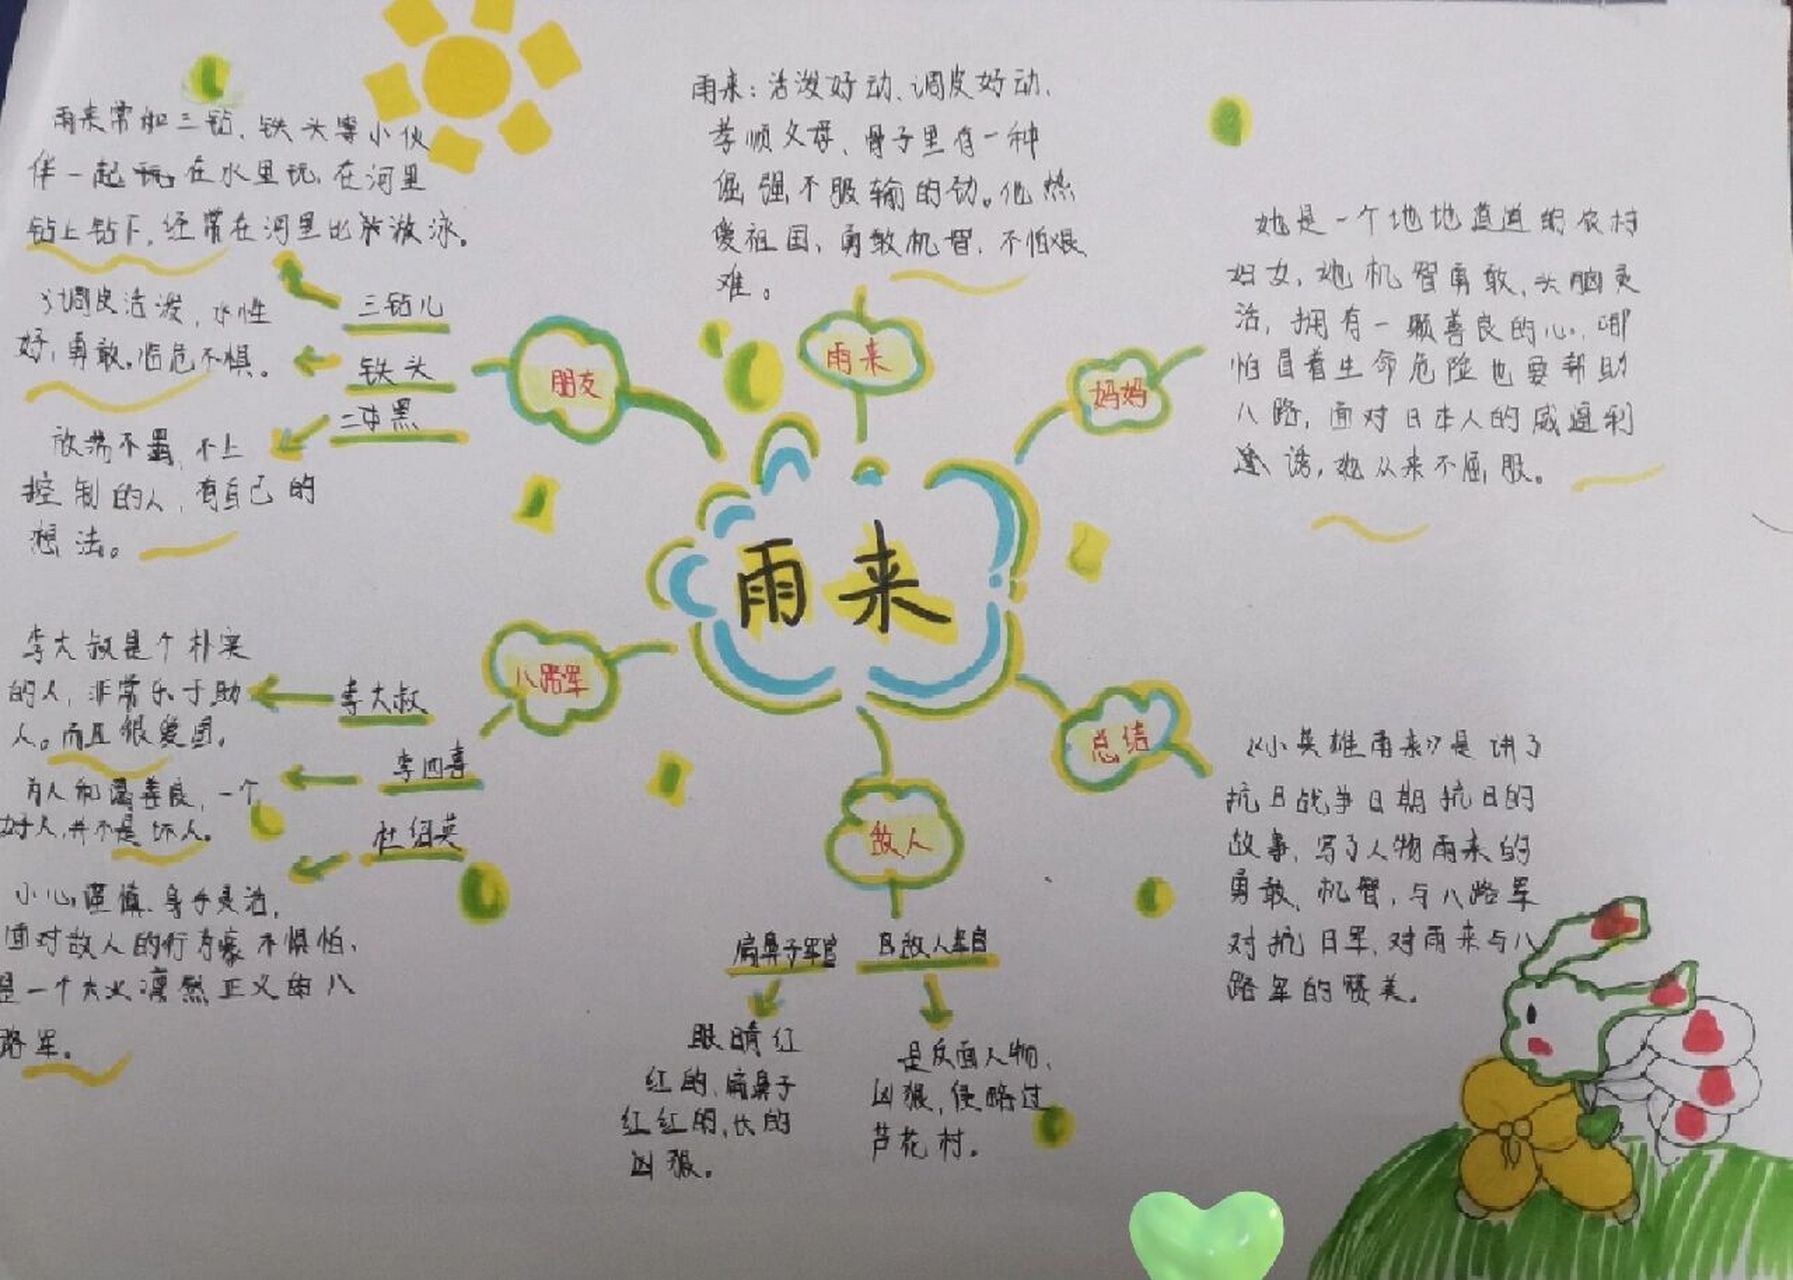 雨来
雨来
雨来：活泼好动、调皮好动、
孝顺父母、骨子里有一种
倔强不服输的劲。他热
爱祖国，勇敢机智，不怕艰
难。
妈妈
她是一个地地道道的农村
妇女，她机智勇敢，头脑灵
活，拥有一颗善良的心，哪
怕冒着生命危险也要帮助
八路，面对日本人的威逼利
诱，她从来不屈服。
总结
《小英雄雨来》是讲了
抗日战争日期抗日的
故事，写了人物雨来的
勇敢、机智，与八路军
对抗日军，对雨来与八
路军的赞美。
敌人
扁鼻子军官
眼睛红
红的，扁鼻子
红红的，长的
凶狠。
日敌人军官
是反面人物，
凶狠，侵略过
芦花村。
八路军
李大叔
李大叔是个朴实
的人，非常乐于助
人。而且很爱国。
李四喜
为人和蔼善良，一个
好人，并不是坏人。
杜绍英
小心谨慎、身手灵活，
面对敌人的行为毫不惧怕，
是一个大义凛然正义的八
路军。
朋友
三钻儿
雨来常和三钻、铁头等小伙
伴一起玩，在水里玩，在河里
钻上钻下，经常在河里比放游泳。
铁头
调皮活泼，水性
好，勇敢，临危不惧。
二黑
放荡不羁，不上
控制的人，有自己的
想法。